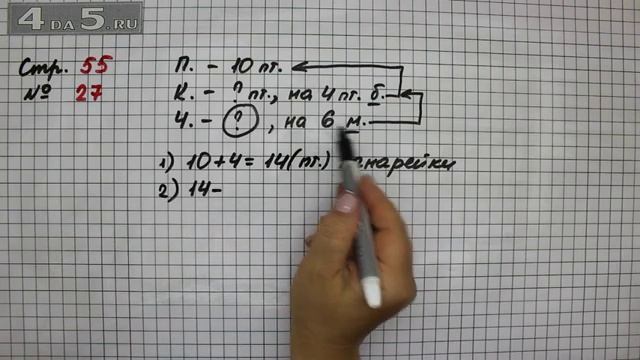 4 DA 5.RU
Стр. 55
№ 27
П. - 10 пт.
К. - ? пт., на 4 пт. б.
Ч. - ? , на 6 м.
1) 10+4=14(пт.)
2) 14-